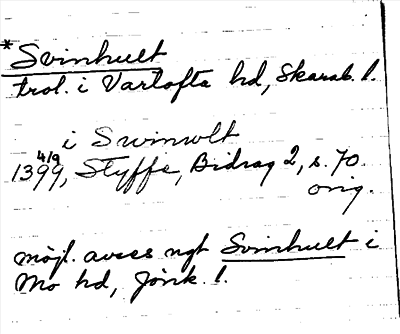 *Svinhult
trol. i Vartofta hd, Skarab. l.
i Swinwlt
4/9
1399, Styffe, Bidrag 2, s. 70.
orig.
möjl. avses ngt Svinhult i
Mo hd, Jönk. l.